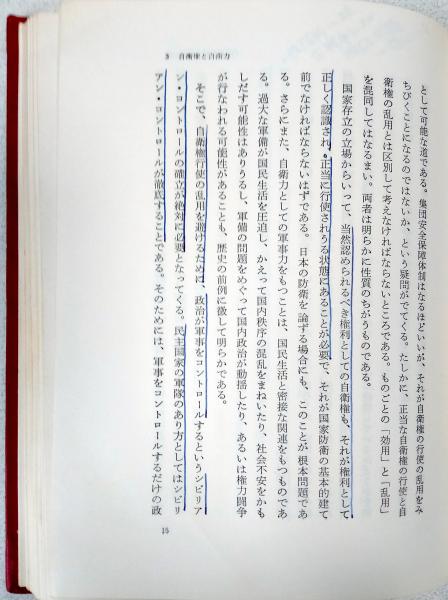 3 自衛権と自衛力
として可能な道である。集団安全保障体制はなるほどいいが、それが自衛権の行使の乱用をみ
ちびくことになるのではないか、という疑問がでてくる。たしかに、正当な自衛権の行使と自
衛権の乱用とは区別して考えなければならないところである。ものごとの「効用」と「乱用」
を混同してはなるまい。両者は明らかに性質のちがうものである。
国家存立の立場からいって、当然認められるべき権利としての自衛権も、それが権利として
正しく認識され、正当に行使されうる状態にあることが必要で、それが国家防衛の基本的建て
前でなければならないはずである。日本の防衛を論ずる場合にも、このことが根本問題であ
る。さらにまた、自衛力としての軍事力をもつことは、国民生活と密接な関連をもつものであ
る。過大な軍備が国民生活を圧迫し、かえって国内秩序の混乱をまねいたり、社会不安をかも
しだす可能性はありうるし、軍備の問題をめぐって国内政治が動揺したり、あるいは権力闘争
が行なわれる可能性があることも、歴史の前例に徴して明らかである。
そこで、自衛権行使の乱用を避けるために、政治が軍事をコントロールするというシビリア
ン・コントロールの確立が絶対に必要となってくる。民主国家の軍隊のあり方としてはシビリ
アン・コントロールが徹底することである。そのためには、軍事をコントロールするだけの政
15